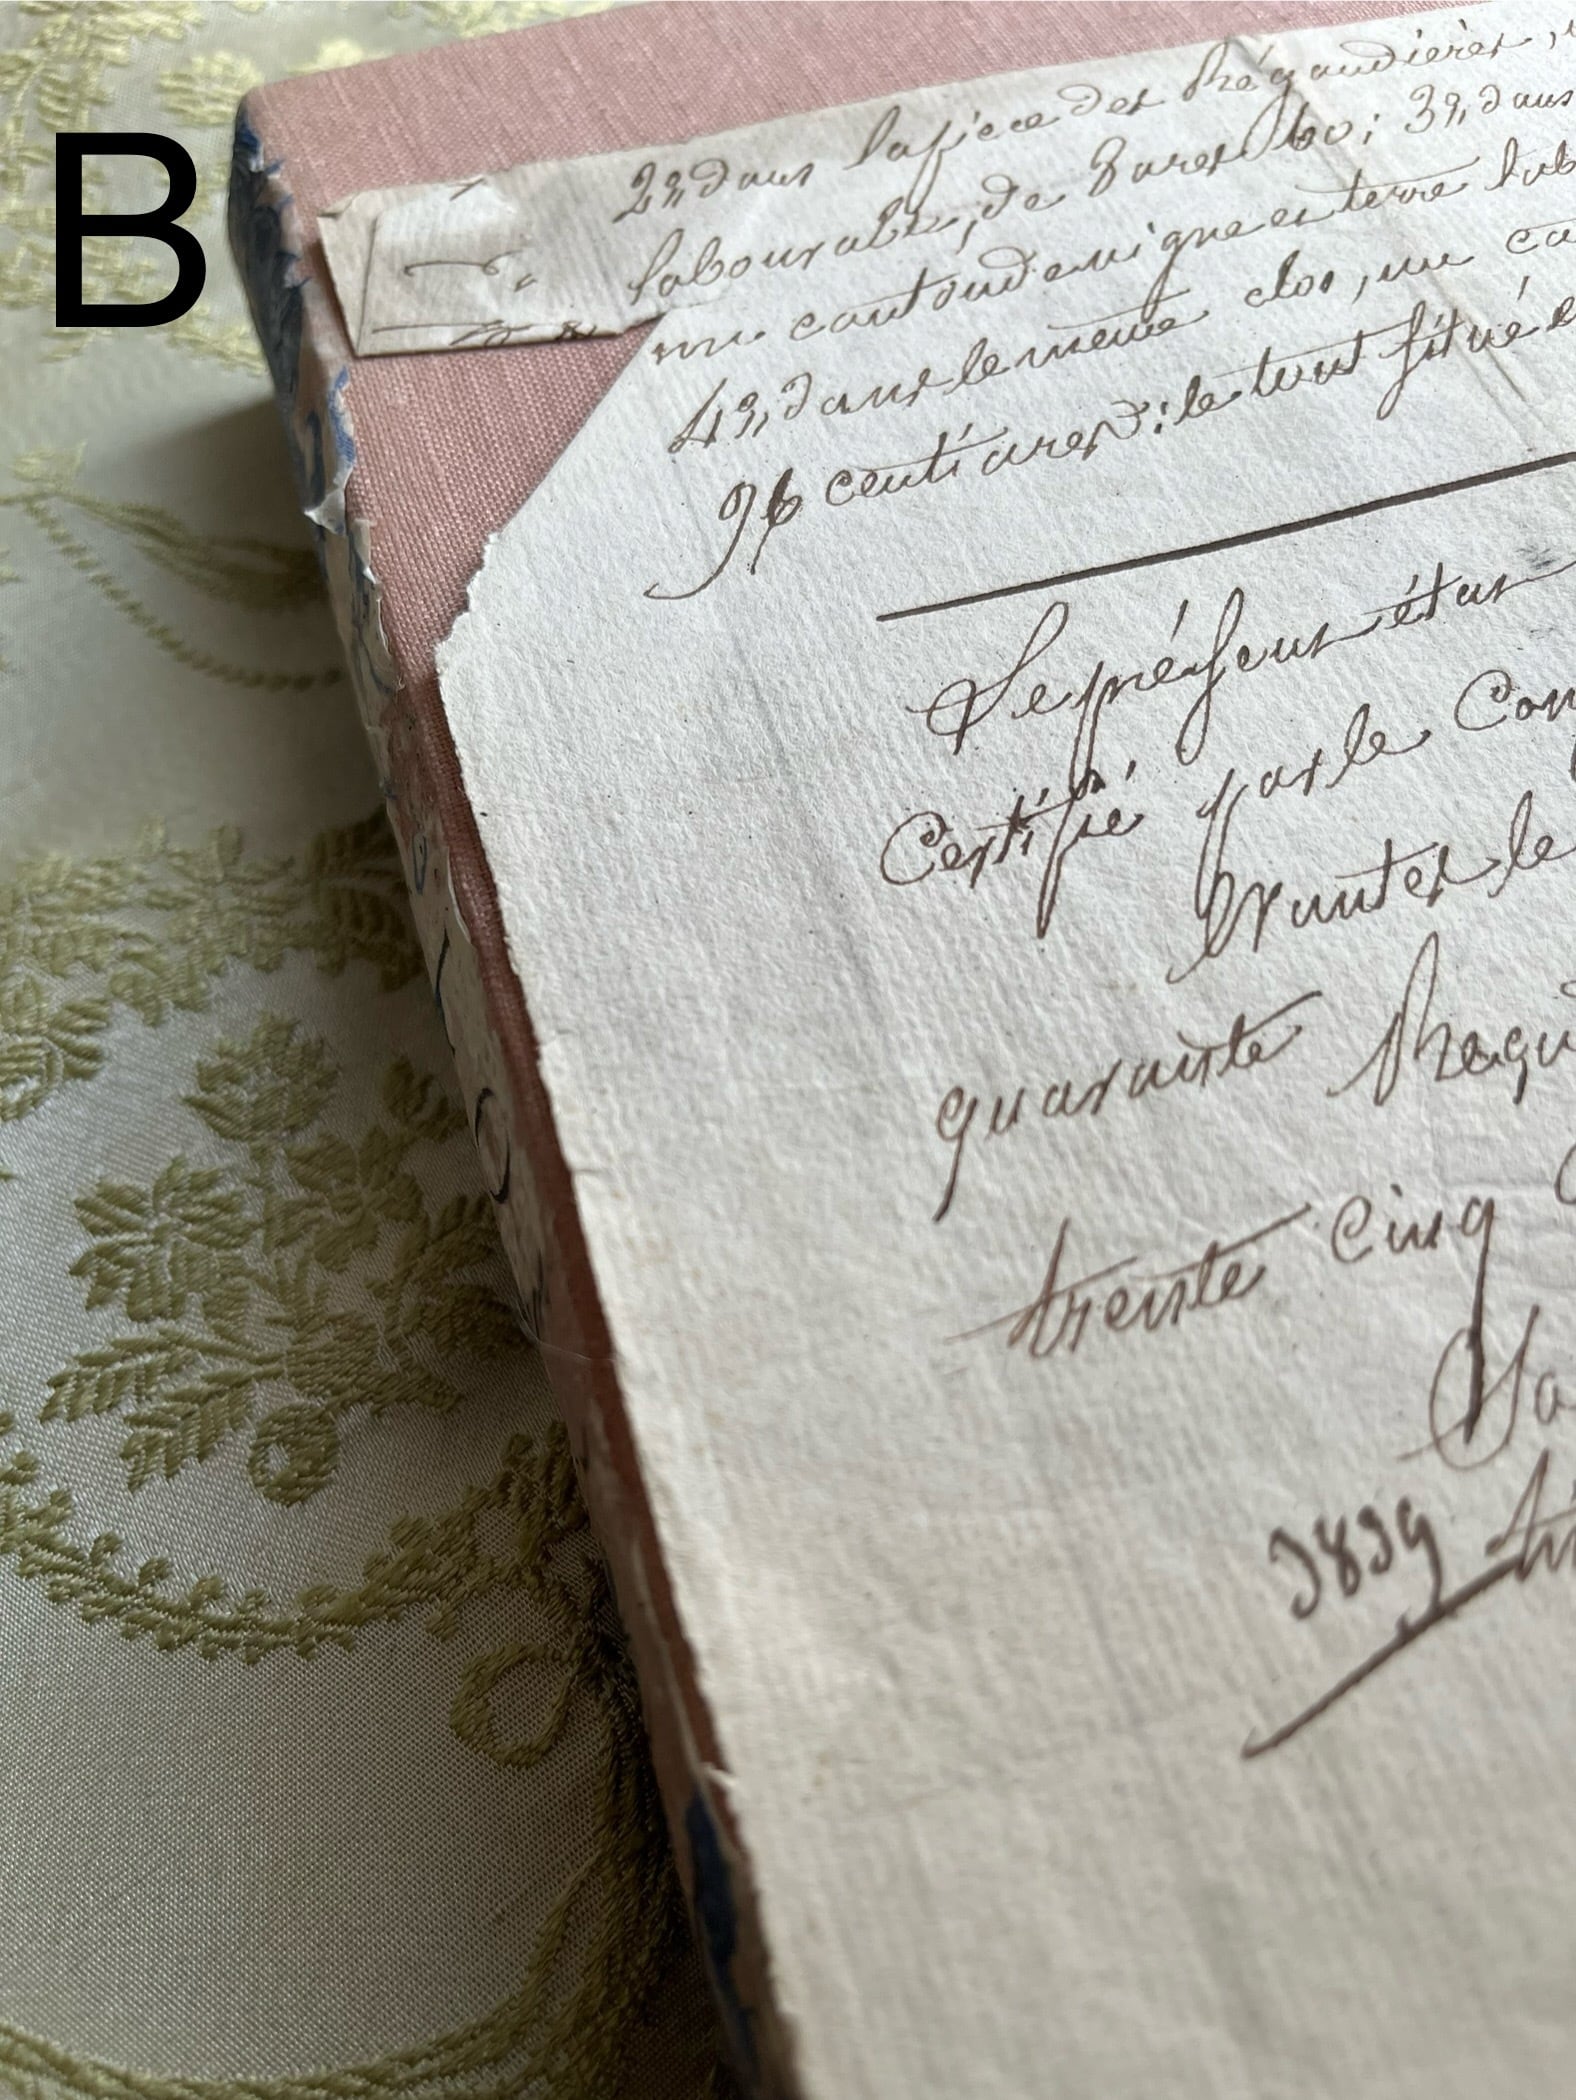 B
2º, dans la pièce des Régaudières,
labourable, de 8 ares 60; 3º, dans
un canton de vigne en terre lab
4º, dans le même clos, un ca
96 centiares: le tout situé
Le présent état
Certifié par le Con
Nantes le
quarante
trente cinq
1839